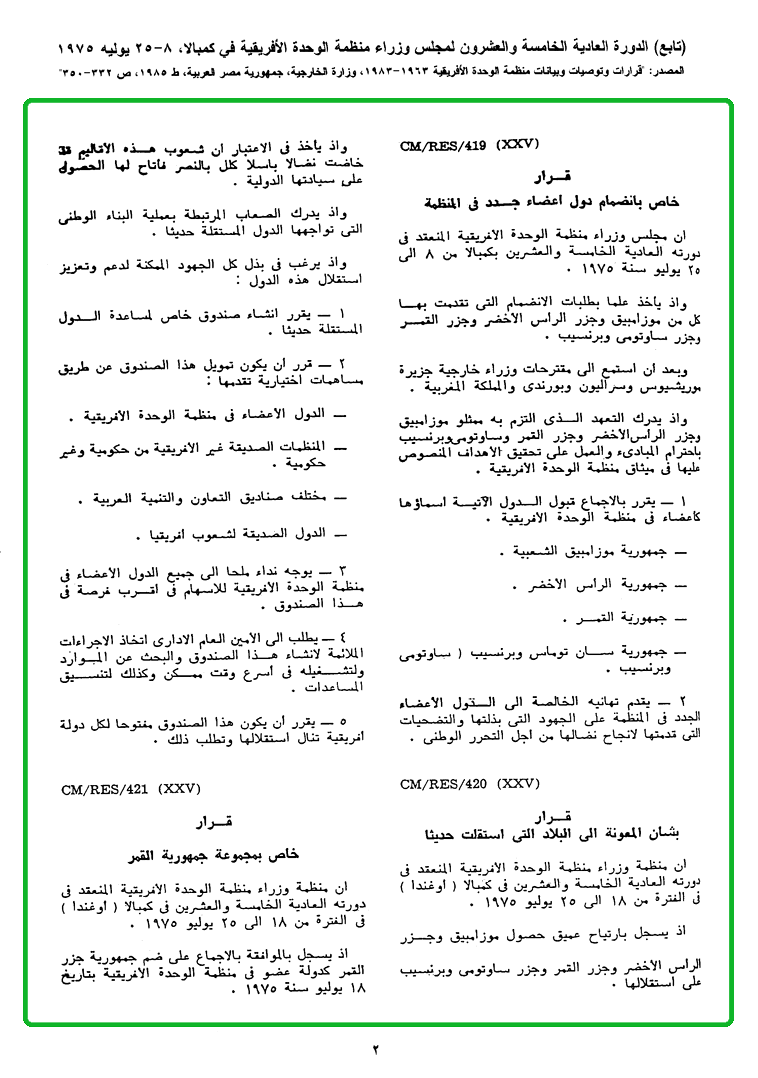 (تابع) الدورة العادية الخامسة والعشرون لمجلس وزراء منظمة الوحدة الأفريقية في كمبالا، ٨-٢٥ يوليه ١٩٧٥
المصدر: "قرارات وتوصيات وبيانات منظمة الوحدة الأفريقية ١٩٦٣-١٩٨٣، وزارة الخارجية، جمهورية مصر العربية، ط ١٩٨٥، ص ٣٣٢-٣٥٠"
CM/RES/419 (XXV)
قــرار
خاص بانضمام دول اعضاء جــدد فى المنظمة
ان مجلس وزراء منظمة الوحدة الافريقية المنعقد فى
دورته العادية الخامسة والعشرين بكمبالا من ٨ الى
٢٥ يوليو سنة ١٩٧٥ .
واذ يأخذ علما بطلبات الانضمام التى تقدمت بهــا
كل من موزامبيق وجزر الراس الأخضر وجزر القمــر
وجزر ساوتومى وبرنسيب .
وبعد ان استمع الى مقترحات وزراء خارجية جزيرة
موريشيوس وسراليون وبورندى والمملكة المغربية .
واذ يدرك التعهد الــذى التزم به ممثلو موزامبيق
وجزر الراس الأخضر وجزر القمر وساوتومى وبرنسيب
باحترام المبادىء والعمل على تحقيق الأهداف المنصوص
عليها فى ميثاق منظمة الوحدة الافريقية .
١ — يقرر بالاجماع قبول الــدول الآتيــة اسماؤها
كأعضاء فى منظمة الوحدة الافريقية .
— جمهورية موزامبيق الشعبية .
— جمهورية الراس الأخضر .
— جمهورية القمــر .
— جمهورية ســان توماس وبرنسيب ( ساوتومى
وبرنسيب .
٢ — يقدم تهانيه الخالصة الى الــدول الأعضاء
الجدد فى المنظمة على الجهود التى بذلتها والتضحيات
التى قدمتها لانجاح نضالها من اجل التحرر الوطنى .
CM/RES/420 (XXV)
قــرار
بشان المعونة الى البلاد التى استقلت حديثا
ان منظمة وزراء منظمة الوحدة الافريقية المنعقد فى
دورته العادية الخامسة والعشرين فى كمبالا ( أوغندا )
فى الفترة من ١٨ الى ٢٥ يوليو ١٩٧٥ .
اذ يسجل بارتياح عميق حصول موزامبيق وجــزر
الراس الأخضر وجزر القمر وجزر ساوتومى وبرنسيب
على استقلالها .
واذ يأخذ فى الاعتبار ان شعوب هــذه الأقاليم قد
خاضت نضالا باسلا كلل بالنصر فأتاح لها الحصول
على سيادتها الدولية .
واذ يدرك الصعاب المرتبطة بعملية البناء الوطنى
التى تواجهها الدول المستقلة حديثا .
واذ يرغب فى بذل كل الجهود الممكنة لدعم وتعزيز
استقلال هذه الدول :
١ — يقرر انشاء صندوق خاص لمساعدة الــدول
المستقلة حديثا .
٢ — قرر ان يكون تمويل هذا الصندوق عن طريق
مساهمات اختيارية تقدمها :
— الدول الأعضاء فى منظمة الوحدة الافريقية .
— المنظمات الصديقة غير الافريقية من حكومية وغير
حكومية .
— مختلف صناديق التعاون والتنمية العربية .
— الدول الصديقة لشعوب افريقيا .
٣ — يوجه نداء ملحا الى جميع الدول الأعضاء فى
منظمة الوحدة الافريقية للاسهام فى اقــرب فرصة فى
هــذا الصندوق .
٤ — يطلب الى الامين العام الادارى اتخاذ الاجراءات
الملائمة لانشاء هــذا الصندوق والبحث عن المــوارد
ولتشــغيله فى أسرع وقت ممــكن وكذلك لتنســيق
المساعدات .
٥ — يقرر أن يكون هذا الصندوق مفتوحا لكل دولة
افريقية تنال استقلالها وتطلب ذلك .
CM/RES/421 (XXV)
قــرار
خاص بمجموعة جمهورية القمر
ان منظمة وزراء منظمة الوحدة الافريقية المنعقد فى
دورته العادية الخامسة والعشرين فى كمبالا ( أوغندا )
فى الفترة من ١٨ الى ٢٥ يوليو ١٩٧٥ .
اذ يسجل بالموافقة بالاجماع على ضم جمهورية جزر
القمر كدولة عضو فى منظمة الوحدة الافريقية بتاريخ
١٨ يوليو سنة ١٩٧٥ .
٢